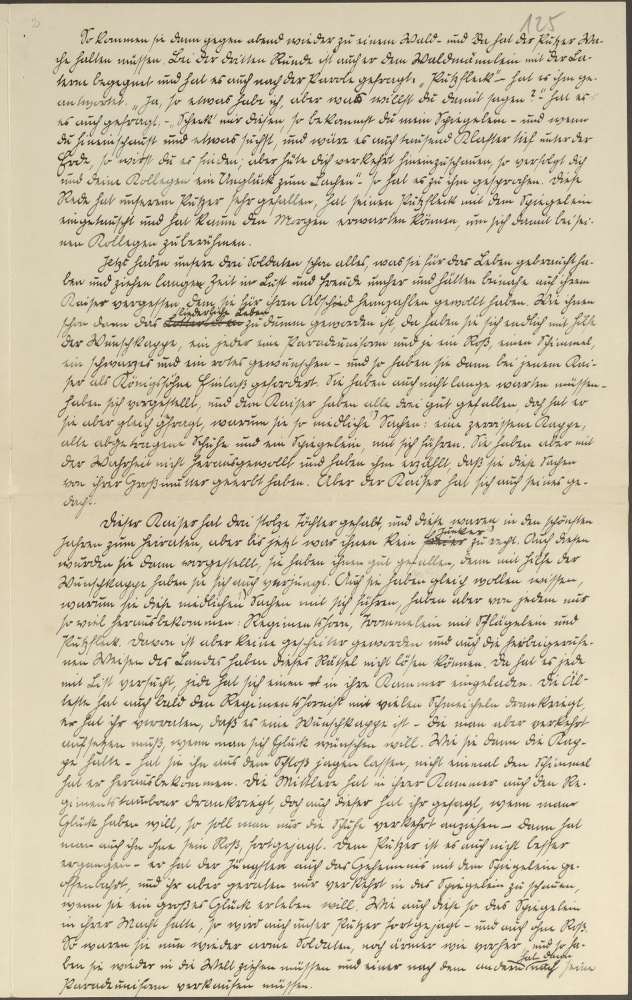 125
So kommen sie dann gegen abend wieder zu einem Wald - und da hat der Putzer Wa-
che halten müssen. Bei der dritten Runde ist auch er dem Waldmännlein mit der La-
terne begegnet und hat es auch nach der Parole gefragt. „Putzfleck" - hat es ihm ge-
antwortet. „Ja, so etwas habe ich, aber was willst du damit sagen?" hat er
es auch gefragt. - „Schenk mir diesen, so bekommst du mein Spiegelein - und wenn
du hineinschaust und etwas suchst, und wäre es auch tausend Klafter tief unter der
Erde, so wirst du es finden; aber hüte dich verkehrt hineinzuschauen, so verfolgt dich
und deine Kollegen ein Unglück zum Lachen" - so hat es zu ihm gesprochen. Diese
Rede hat unserem Putzer sehr gefallen, hat seinen Putzfleck mit dem Spiegelein
eingetauscht und hat kaum den Morgen erwarten können, um sich damit bei sei-
nen Kollegen zu berühmen.
Jetzt haben unsere drei Soldaten schon alles, was sie für das Leben gebraucht ha-
ben und ziehen lange Zeit in Lust und Freude umher und hätten beinahe auf ihren
Kaiser vergessen, dem sie für ihren Abschied heimzahlen gewollt haben. Wie ihnen
schon dann das liederliche Leben zu dumm geworden ist, da haben sie sich endlich mit Hilfe
der Wunschkappe, ein jeder eine Paradeuniform und je ein Roß, einen Schimmel,
ein schwarzes und ein rotes gewunschen - und so haben sie dann bei jenem Kai-
ser als Königssöhne Einlaß gefordert. Sie haben auch nicht lange warten müssen -
haben sich vorgestellt, und dem Kaiser haben alle drei gut gefallen, doch hat er
sie aber gleich gefragt, warum sie so niedliche Sachen: eine zerrissene Kappe,
alte abgetragene Schuhe und ein Spiegelein, mit sich führen. Sie haben aber mit
der Wahrheit nicht herausgewollt und haben ihm erzählt, daß sie diese Sachen
von ihrer Großmutter geerbt haben. Aber der Kaiser hat sich auch seines ge-
dacht.
Dieser Kaiser hat drei stolze Töchter gehabt, und diese waren in den schönsten
Jahren zum Heiraten, aber bis jetzt war ihnen kein Junker zu recht. Auch diesen
wurden sie dann vorgestellt, sie haben ihnen gut gefallen, denn mit Hilfe der
Wunschkappe haben sie sich auch verjüngt. Auch sie haben gleich wollen wissen,
warum sie diese niedlichen Sachen mit sich führen, haben aber von jedem nur
so viel herausbekommen: Regimentshorn, Trommelein mit Schlägelein und
Putzfleck. Davon ist aber keine gescheiter geworden und auch die herbeigerufe-
nen Weisen des Landes haben dieses Rätsel nicht lösen können. Da hat es jede
mit List versucht, jede hat sich einen in ihre Kammer eingeladen. Die Äl-
teste hat auch bald den Regimentshornist mit vielen Schmeicheln drankriegt,
er hat ihr verraten, daß es eine Wunschkappe ist - die man aber verkehrt
aufsetzen muß, wenn man sich Glück wünschen will. Wie sie dann die Kap-
pe hatte - hat sie ihn aus dem Schloß jagen lassen, nicht einmal den Schimmel
hat er herausbekommen. Die Mittlere hat in ihrer Kammer auch den Re-
gimentstambour drankriegt, doch auch dieser hat ihr gesagt, wenn man
Glück haben will, so soll man nur die Schuhe verkehrt anziehen - dann hat
man auch ihn ohne sein Roß, fortgejagt. Dem Putzer ist es auch nicht besser
ergangen - er hat der Jüngsten auch das Geheimnis mit dem Spiegelein ge-
offenbahrt, und ihr aber geraten nur verkehrt in das Spiegelein zu schauen,
wenn sie ein großes Glück erleben will. Wie auch diese so das Spiegelein
in ihrer Macht hatte, so wird auch unser Putzer fortgejagt - und auch ohne Roß.
So waren sie nun wieder arme Soldaten, noch ärmer wie vorher, und so ha-
ben sie wieder in die Welt ziehen müssen und einer nach dem andern hat dann seine
Paradeuniform verkaufen müssen.